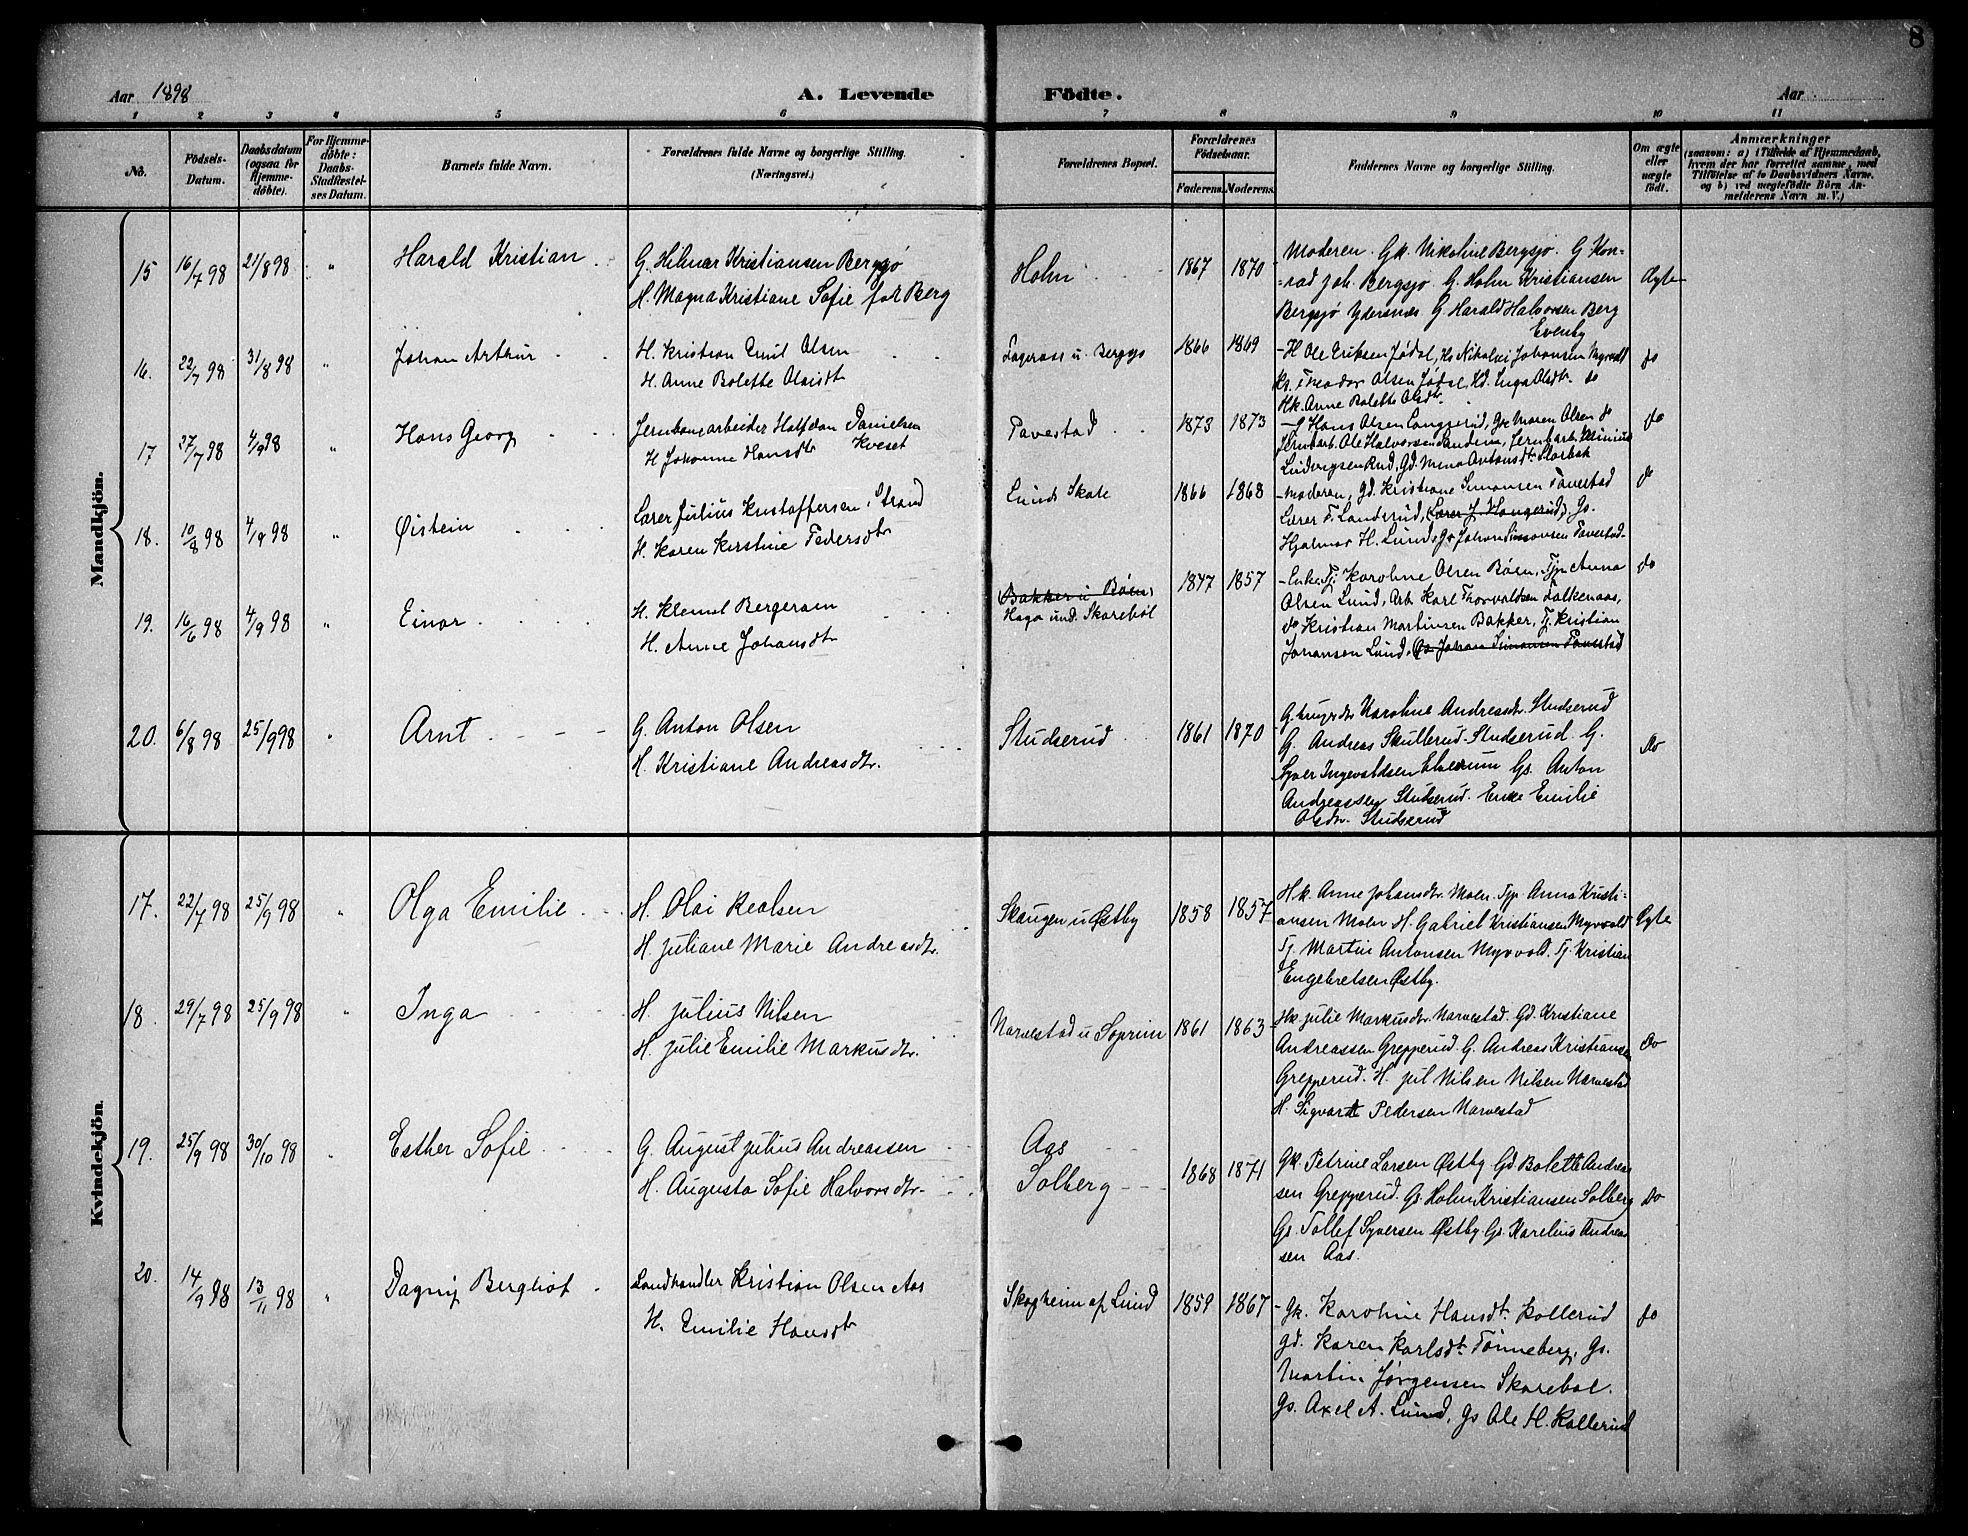 8
Aar 1898
A. Levende Födte.
Aar
1 2 3 4 5 6 7 8 9 10 11
No.
Födsels-Datum.
Daabsdatum (ogsaa for Hjemme-döbte).
For Hjemme-döbte: Daabs-Stadfæstel-ses Datum.
Barnets fulde Navn.
Forældrenes fulde Navne og borgerlige Stilling. (Næringsvei.)
Forældrenes Bopæl.
Forældrenes Födselsaar.
Faderens. Moderens.
Faddernes Navne og borgerlige Stilling.
Om ægte eller uægte födt.
Anmærkninger
(saasom: a) i Tilfælde af Hjemmedaab,
hvem der har forrettet samme, med
Tilföielse af to Daabsvidners Navne,
og b) ved uægtefödte Börn An-
melderens Navn m. V.)
Mandkjön.
15 16/7 98 21/8 98 " Harald Kristian
G. Hilmar Kristiansen Bergsjø
H. Magna Kristiane Sofie f. Berg
Holm 1867 1870
Moderen. Gk. Nikoline Bergsjø. G Kon-
=rad Joh. Bergsjø. G. Holm Kristiansen
Bergsjø Ydersnes G. Harald Halvorsen Berg
Evenby
Ægte
16. 22/7 98 31/8 98 " Johan Arthur
H. Kristian Emil Olsen
H. Anne Bolette Olsdt
u. Bergsjø 1866 1869
- H Ole Eriksen Jødal, Hs Nikolai Johansen Myrvold
Ks. Theodor Olsen Jødal, Kd. Inga Olsdtr. do
Hk. Anne Bolette Olsdtr.
do
17 27/7 98 4/9 98 " Hans Georg
Jernbanearbeider Halfdan Danielsen
H Johanne Hansdtr Kveset
Tavestad 1873 1873
- G Hans Olsen Langgerud, Gk Maren Olsen do
Jernbarb. Ole Halvorsen Sandem, Jernbarb.
Ludvigsen Rud, Gd. Mina Antonsdtr. Storbæk
do
18. 10/8 98 4/9 98 " Øistein
Lærer Julius Kristoffersen Strand
H. Karen Kirstine Pedersdtr
Lunds Skole 1866 1868
- Moderen, Gd. Kristiane Simonsen Tavestad
Lærer F. Landsrud, (Lærer J. Haugerud), Gs.
Hjalmar H. Lund, Gs Johan Simonsen Tavestad.
do
19. 16/6 98 4/9 98 " Einar
H. Klemet Bergersen
H. Anne Johansdtr
(Bakker u Bøen)
Haga und. Skarebøl 1847 1857
- Enke, Tj Karoline Olsen Bøen, Tjp Anna
Olsen Lund, Arb. Karl Thorvaldsen Falkenaas,
do Kristian Martinsen Bakker, Tj. Kristian
Johansen Lund, (Gs Johan Simonsen Tavestad
do
20. 6/8 98 25/9 98 " Arnt
G. Anton Olsen
H. Kristiane Andreasdtr.
Studserud 1861 1870
Karoline Andreasdtr. Studserud
G. Andreas Skullerud-Studserud G.
Syver Ingevaldsen Elverum Gs. Anton
Andreassen Studserud. Enke Emilie
Olsdtr. Studserud
Do
Kvindekjön.
17. 22/7 98 25/9 98 " Olga Emilie
H. Olai Realsen
H. Juliane Marie Andreasdtr.
Skaugen u Østby 1858 1857
Hk. Anne Johansdtr. Moen. Tjp. Anna Kristi-
ansen Moen H. Gabriel Kristiansen Myrvold
Tj. Martin Antonsen Myrvold. Tj. Kristian
Engebretsen Østby.
Ægte
18. 29/7 98 25/9 98 " Inga
H Julius Nilsen
H. Julie Emilie Markusdtr.
Narvestad u Soprim 1861 1863
Hk. Julie Markusdtr. Narvestad. Gd. Kristiane
Andreassen Grepperud. G. Andreas Kristiansen
Grepperud. H. Jul Nilsen Nilsen Narvestad
H. Sigvardt Pedersen Narvestad
Do
19. 25/9 98 30/10 98 " Esther Sofie
G. August Julius Andreassen
H. Augusta Sofie Halvorsdtr.
Aas
Solberg 1868 1871
Gk. Petrine Larsen Østby Gd Bolette Andreas
sen Grepperud. Gs. Holm Kristiansen Solberg
Gs. Tollef Syversen Østby Gs. Karelius Andreas
sen Aas.
Do
20. 14/9 98 13/11 98 " Dagny Bergliot
Landhandler Kristian Olsen Aas
H. Emilie Hansdtr
Skogheim af Lund 1859 1867
- Gk. Karoline Hansdt. Kollerud
Gd. Karen Karlsdt. Tønneberg, Gs.
Martin Jørgensen Skarebøl.
Gs. Axel A. Lund, Gs Ole H. Kollerud
do